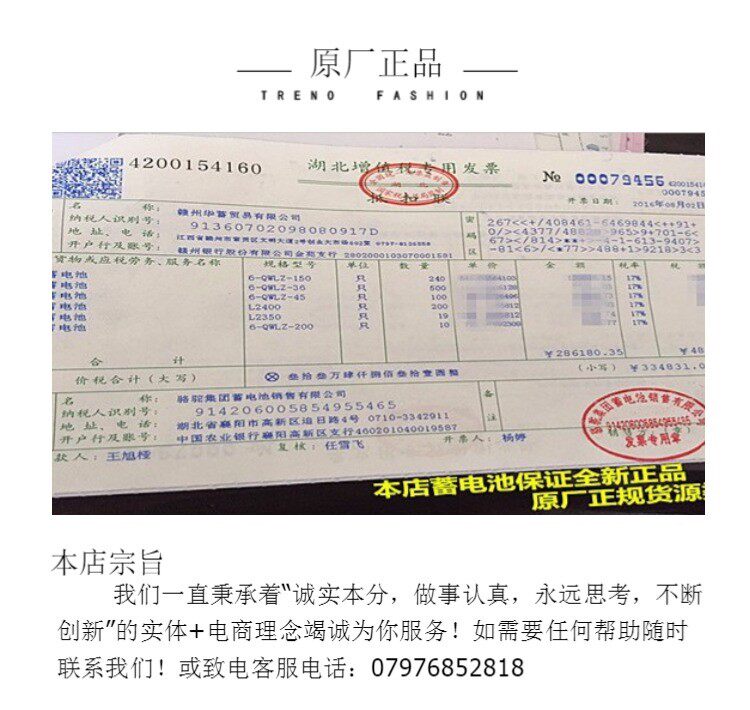 原厂正品
TRENO FASHION
4200154160
湖北增值税专用发票
№ 00079456
抵扣联
开票日期: 2016年08月02日
名 称: 赣州华蓄贸易有限公司
纳税人识别号: 91360702098080917D
地 址、电 话:
开户行及账号: 赣州银行股份有限公司金苑支行 2802000103070001501
密码区
货物或应税劳务、服务名称 规格型号 单位 数量 单价 金额 税率 税额
蓄电池 6-QWLZ-150 只 240 17%
蓄电池 6-QWLZ-36 只 500 17%
蓄电池 6-QWLZ-45 只 100 17%
蓄电池 L2400 只 200 17%
蓄电池 L2350 只 19 17%
蓄电池 6-QWLZ-200 只 10 17%
合 计 ¥286180.35 ¥48
价税合计(大写) (小写) ¥334831.0
名 称: 骆驼集团蓄电池销售有限公司
纳税人识别号: 914206005854955465
地 址、电 话: 湖北省襄阳市高新区追日路4号 0710-3342911
开户行及账号: 中国农业银行襄阳高新区支行460201040019587
备注
款人: 王旭桠 复核: 任雪飞 开票人: 杨婷
骆驼集团蓄电池销售有限公司
914206005854955465
发票专用章
本店蓄电池保证全新正品
原厂正规货源
本店宗旨
我们一直秉承着“诚实本分，做事认真，永远思考，不断
创新”的实体+电商理念竭诚为你服务！如需要任何帮助随时
联系我们！或致电客服电话：07976852818